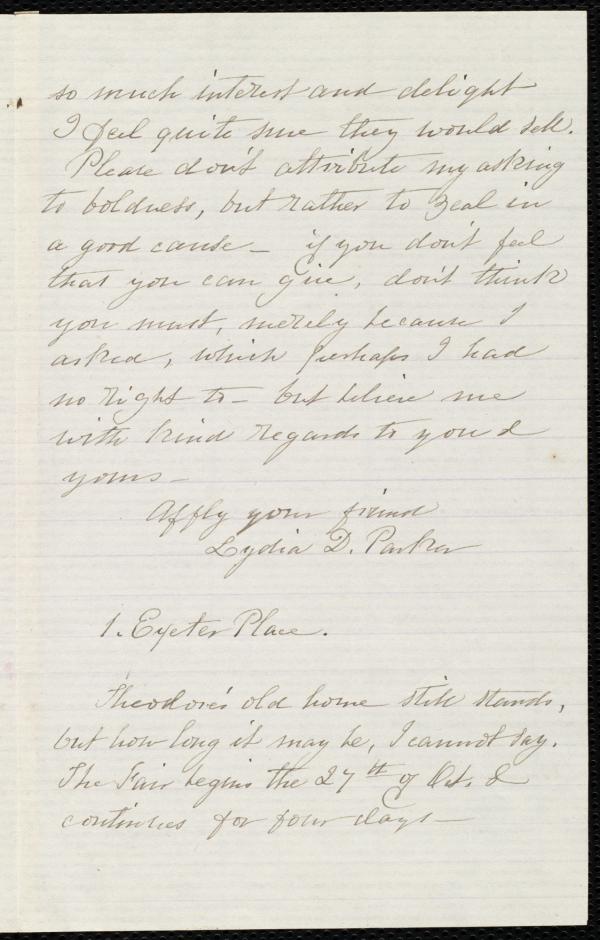 so much interest and delight
I feel quite sure they would sell.
Please don't attribute my asking
to boldness, but rather to zeal in
a good cause – if you don't feel
that you can give, don't think
you must, merely because I
asked, which perhaps I had
no right to – but believe me
with kind regards to you &
yours –
Affly your friend
Lydia D. Parker
1. Exeter Place.
Theodore's old home still stands,
but how long it may be, I cannot say.
The Fair begins the 27th of Oct. &
continues for four days –